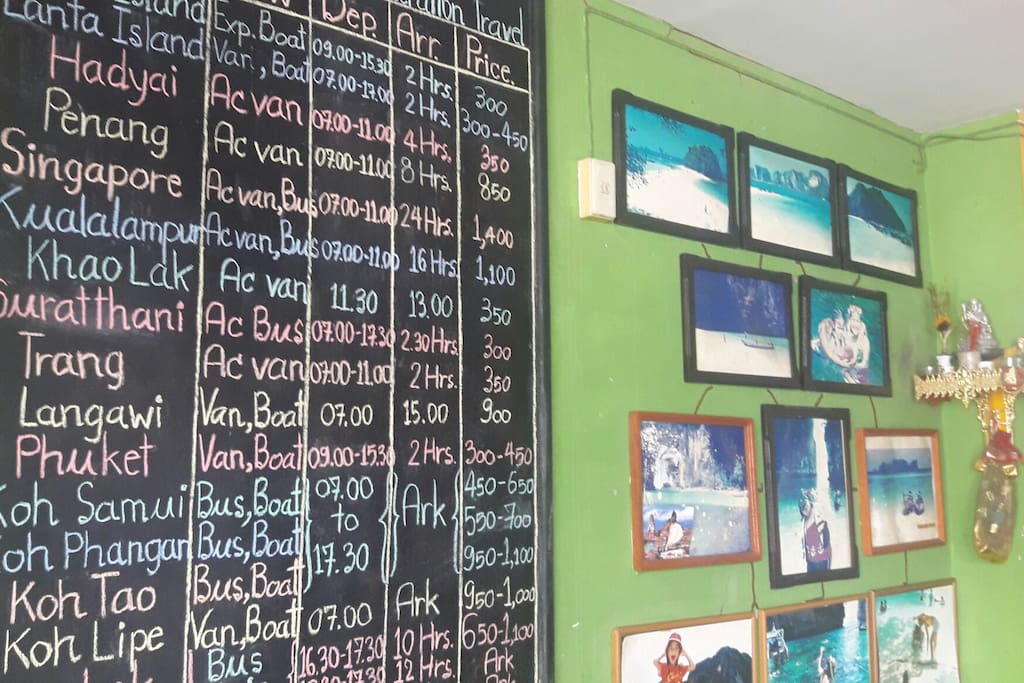 Island Dep. Arr. Travel
Exp. Boat 09.00-15.30 2 Hrs. Price.
Lanta Island Van, Boat 07.00-17.00 2 Hrs. 300
Hadyai Ac van 07.00-11.00 4 Hrs. 300-450
Penang Ac van 07.00-11.00 8 Hrs. 350
Singapore Ac van, Bus 07.00-11.00 24 Hrs. 850
Kualalampur Ac van, Bus 07.00-11.00 16 Hrs. 1,400
Khao Lak Ac van 11.30 13.00 1,100
Suratthani Ac Bus 07.00-17.30 2.30 Hrs. 350
Trang Ac van 07.00-11.00 2 Hrs. 300
Langawi Van, Boat 07.00 15.00 350
900
Phuket Van, Boat 09.00-15.30 2 Hrs. 300-450
Koh Samui Bus, Boat 07.00 450-650
Koh Phangan Bus, Boat to Ark 550-700
Koh Tao Bus, Boat 17.30 950-1,100
Koh Lipe Van, Boat 07.00 Ark 950-1,000
Bus 16.30-17.30 10 Hrs. 650-1,100
12 Hrs. Ark